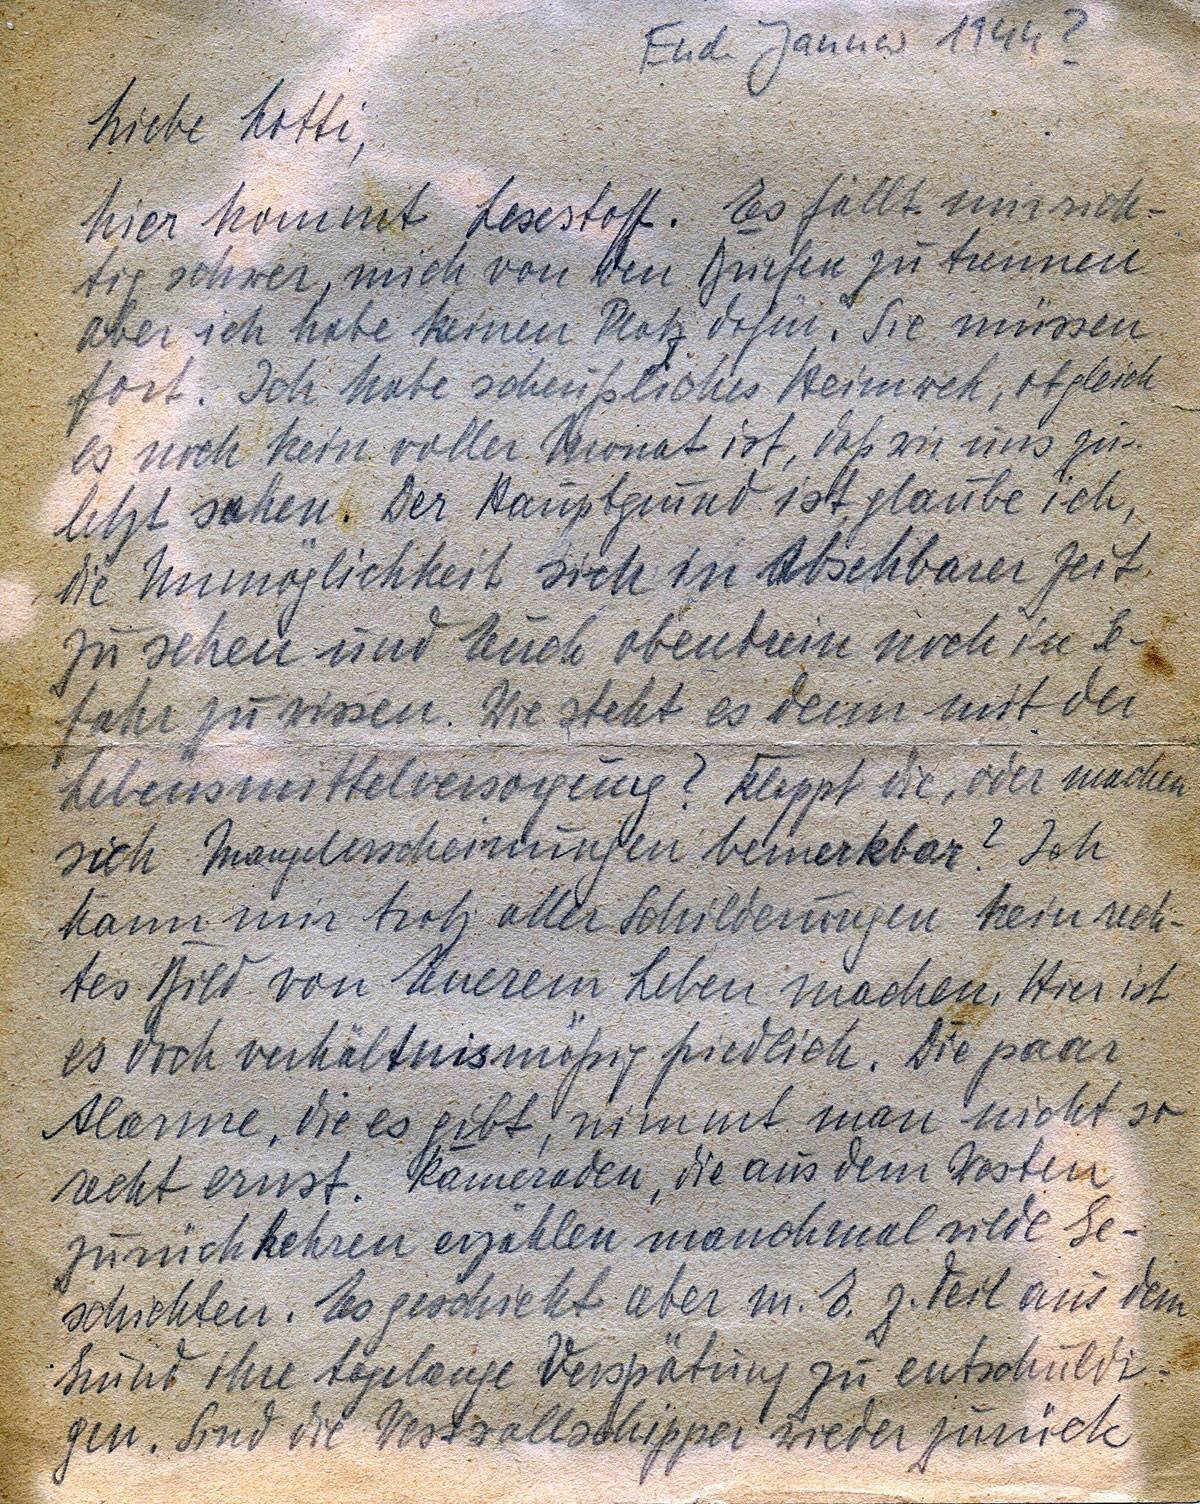 Ende Januar 1944?
Liebe Lotti,
hier kommt Lesestoff. Es fällt mir rich-
tig schwer, mich von den Briefen zu trennen
aber ich habe keinen Platz dafür. Sie müssen
fort. Ich habe scheußliches Heimweh, obgleich
es noch kein voller Monat ist, daß wir uns zu-
letzt sahen. Der Hauptgrund ist, glaube ich,
die Unmöglichkeit sich in absehbarer Zeit
zu sehen und Euch obendrein noch in Ge-
fahr zu wissen. Wie steht es denn mit der
Lebensmittelversorgung? Klappt die, oder machen
sich Mangelerscheinungen bemerkbar? Ich
kann mir trotz aller Schilderungen kein rech-
tes Bild von Euerem Leben machen. Hier ist
es doch verhältnismäßig friedlich. Die paar
Alarme, die es gibt, nimmt man nicht so
recht ernst. Kameraden, die aus dem Westen
zurückkehren erzählen manchmal wilde Ge-
schichten. Es geschieht aber m. E. z. Teil aus dem
Grund ihre tagelange Verspätung zu entschuldi-
gen. Sind die wieder zurück